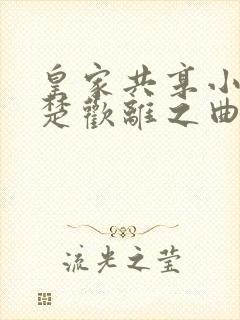 皇家共享小
楚歡離之曲
流光之莹